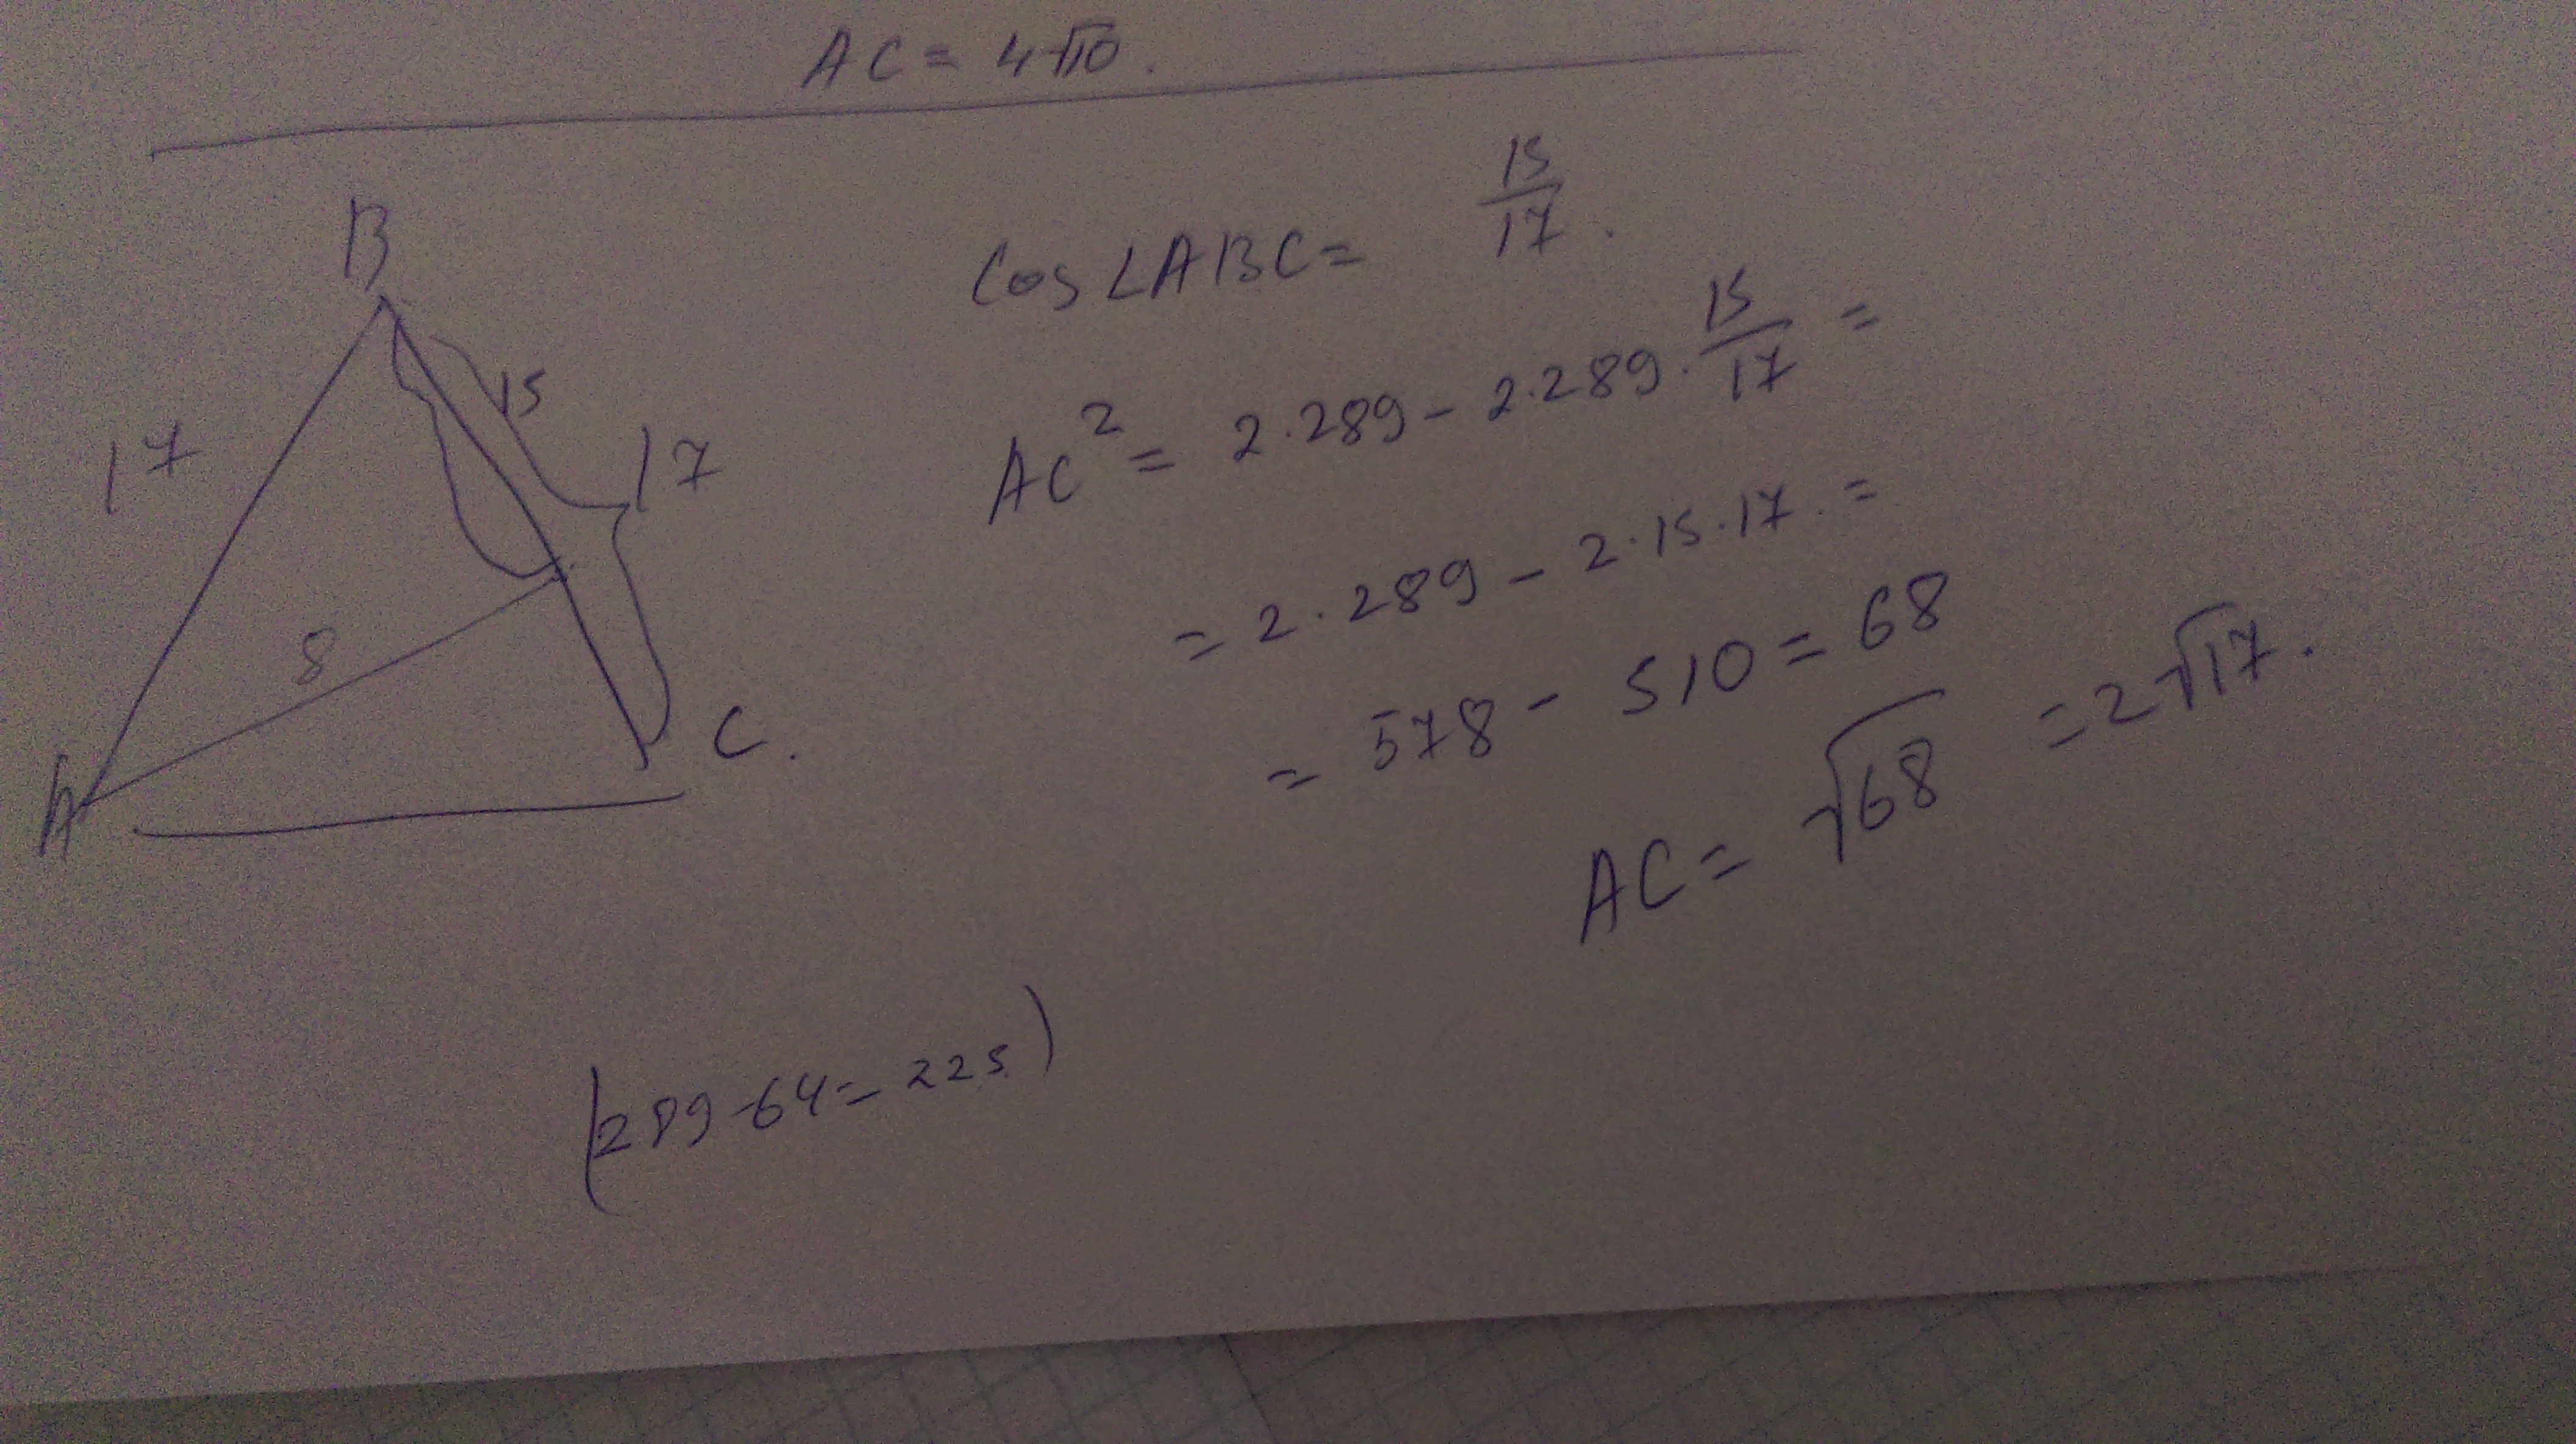 AC = 4√10.
B
15
17
17
8
A
C.
cos∠ABC = 15/17.
AC² = 2·289 - 2·289·15/17 =
= 2·289 - 2·15·17. =
= 578 - 510 = 68
AC = √68 = 2√17.
(289-64=225)